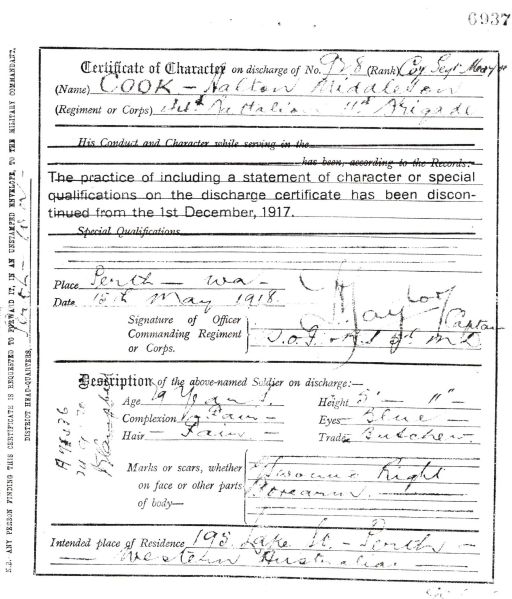 6937
Certificate of Character on discharge of No. 928 (Rank) Coy Sergt Major
(Name) COOK – Halton Middleton
(Regiment or Corps) Battalion Brigade
His Conduct and Character while serving in the
has been, according to the Records:-
The practice of including a statement of character or special
qualifications on the discharge certificate has been discon-
tinued from the 1st December, 1917.
Special Qualifications
Place Perth – WA –
Date 18th May 1918.
Signature of Officer
Commanding Regiment
or Corps.
Taylor
Captain
Description of the above-named Soldier on discharge:—
Age Years
Height 5' – 11" –
Complexion Fair –
Eyes Blue –
Hair – Fair –
Trade Butcher
Marks or scars, whether
on face or other parts
of body—
Right
Forearm.
Intended place of Residence 198 Lake St. – Perth –
Western Australia
N.B. ANY PERSON FINDING THIS CERTIFICATE IS REQUESTED TO FORWARD IT, IN AN UNSTAMPED ENVELOPE, TO THE MILITARY COMMANDANT,
DISTRICT HEAD-QUARTERS,